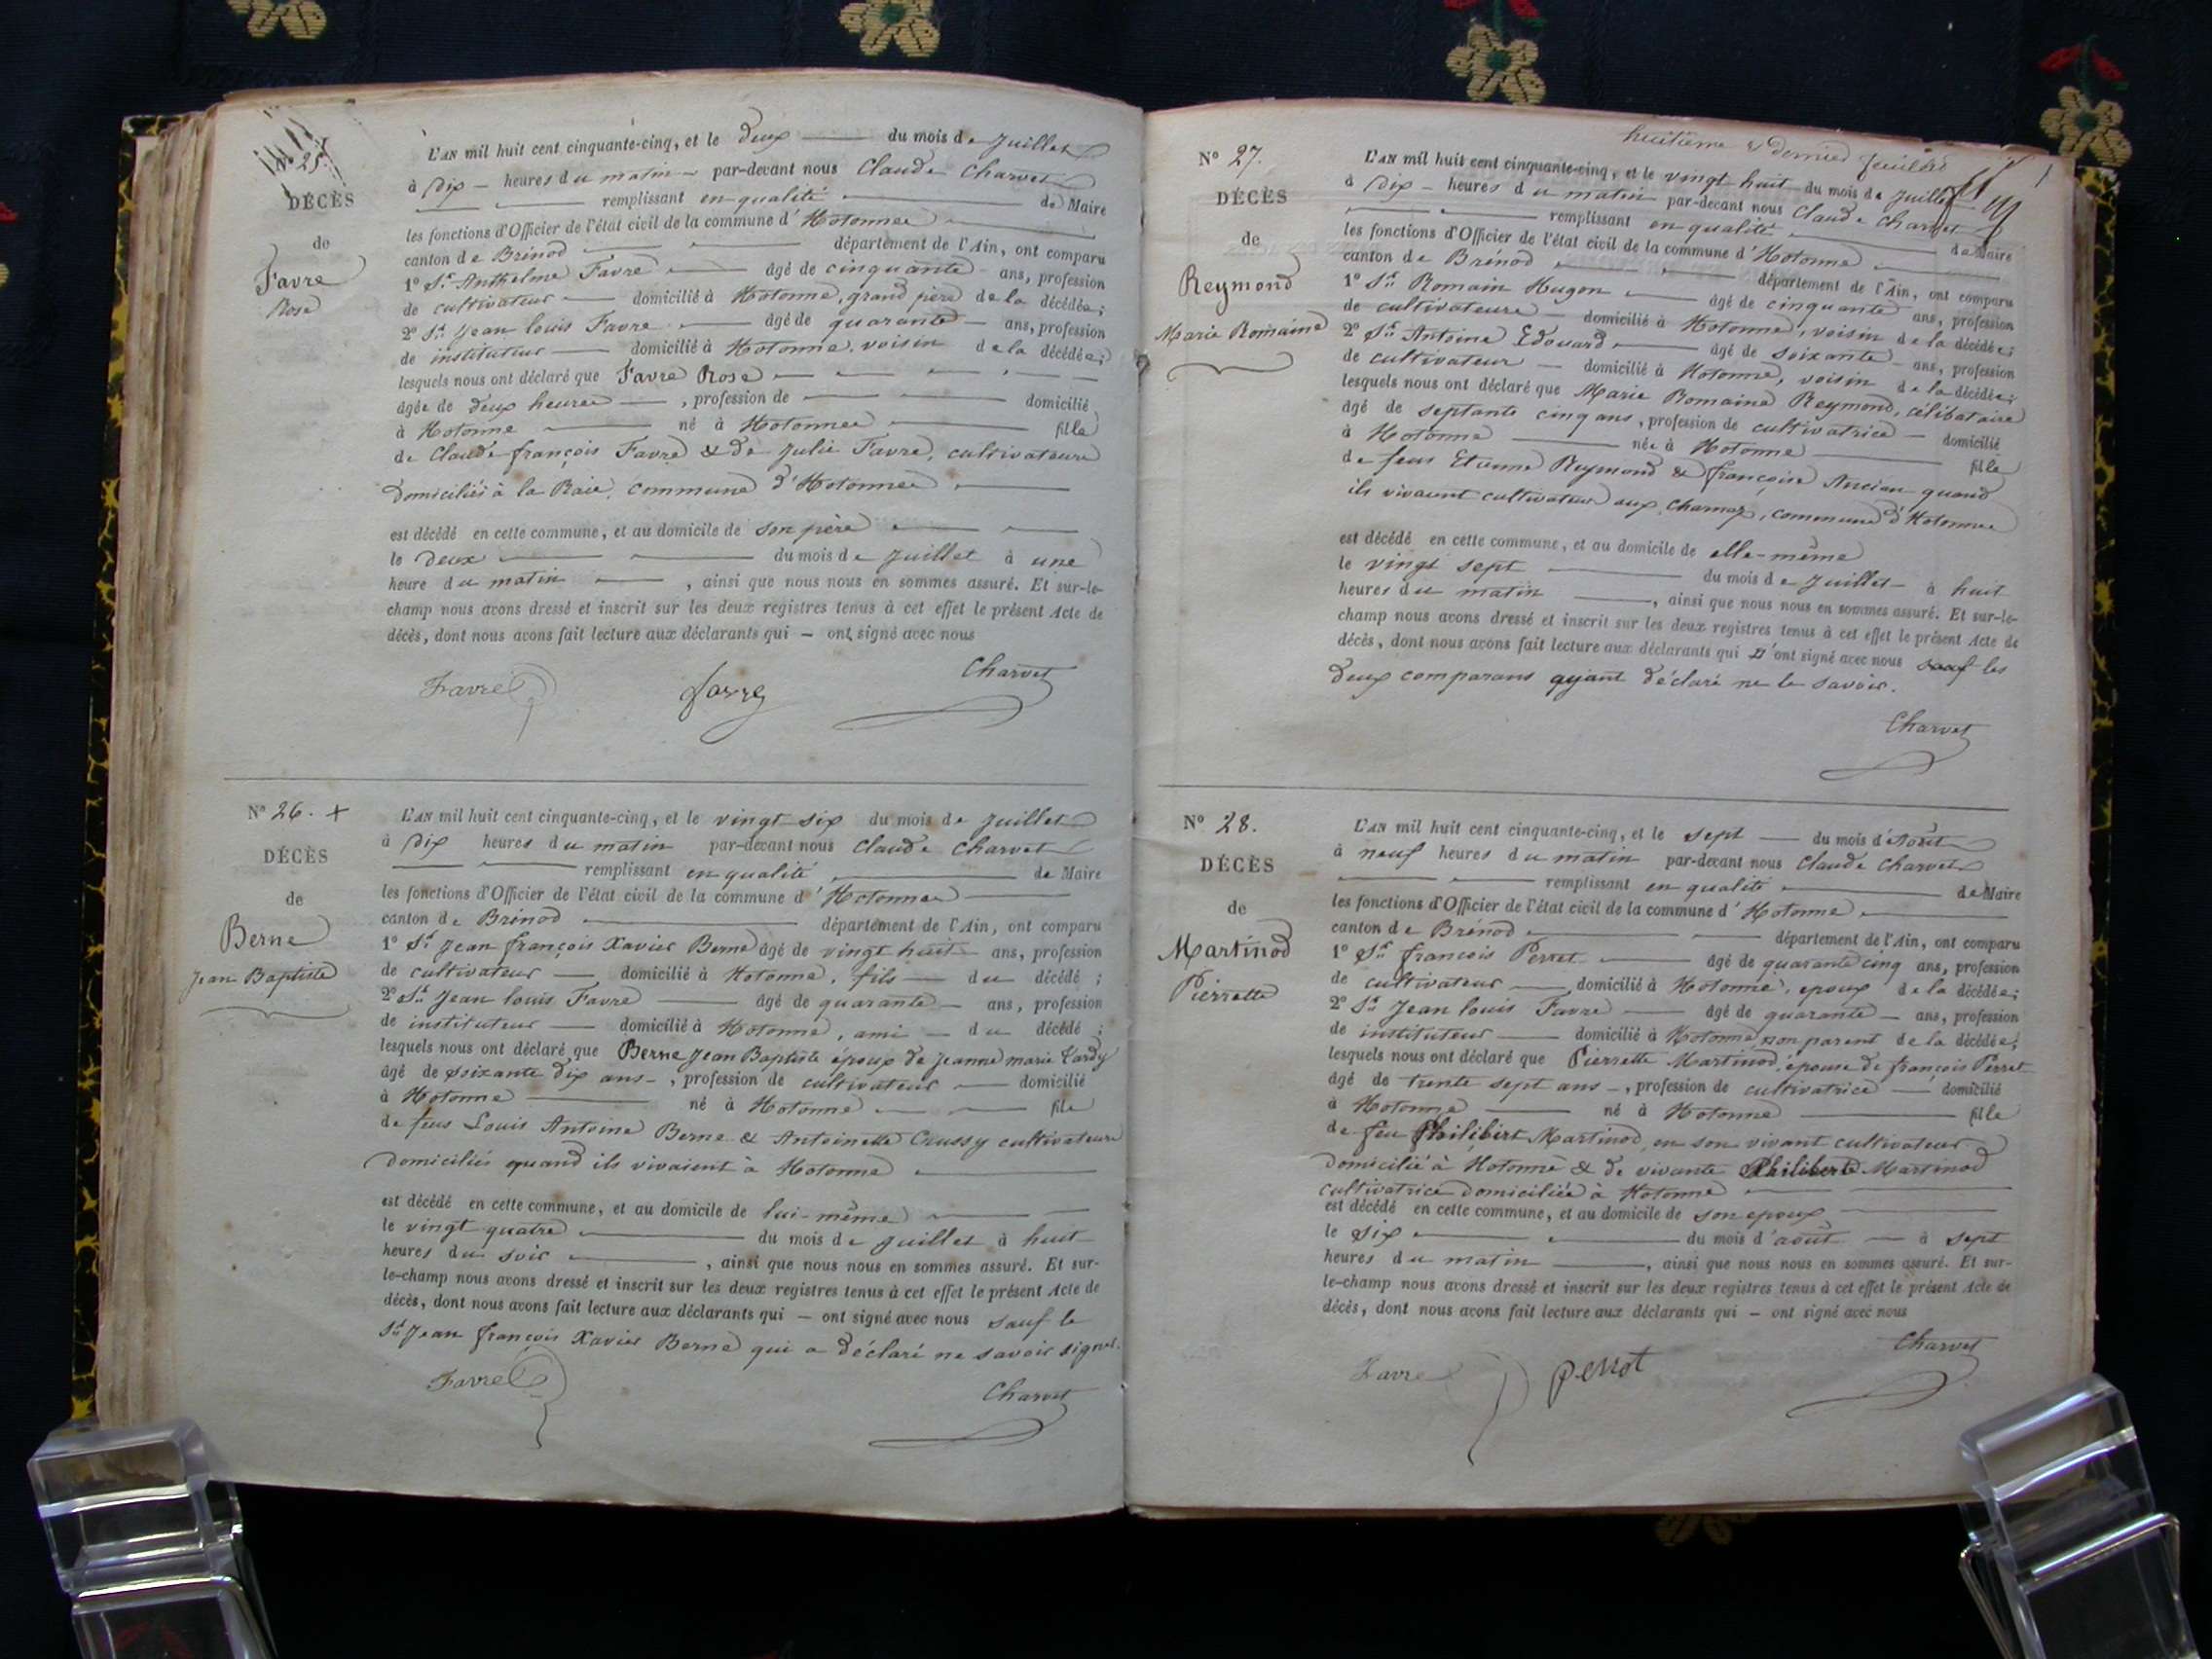 N° 25.
DÉCÈS
de
Favre
Rose
L'AN mil huit cent cinquante-cinq, et le deux du mois de Juillet
à Dix heures du matin par-devant nous Claude Charvet
remplissant en qualité de Maire
les fonctions d'Officier de l'état civil de la commune d'Hotonnes
canton de Brénod département de l'Ain, ont comparu
1° Sr. Anthelme Favre âgé de cinquante ans, profession
de cultivateur domicilié à Hotonne, grand père de la décédée;
2° Sr. Jean louis Favre âgé de quarante ans, profession
de instituteur domicilié à Hotonne, voisin de la décédée;
lesquels nous ont déclaré que Favre Rose
âgée de deux heures, profession de domicilié
à Hotonne né à Hotonnes fille
de Claude françois Favre & de Julie Favre, cultivateurs
domiciliés à la Raie, commune d'Hotonnes
est décédé en cette commune, et au domicile de son père
le deux du mois de Juillet à une
heure du matin, ainsi que nous nous en sommes assuré. Et sur-le-
champ nous avons dressé et inscrit sur les deux registres tenus à cet effet le présent Acte de
décès, dont nous avons fait lecture aux déclarants qui — ont signé avec nous
Favre favre Charvet
N° 26. +
DÉCÈS
de
Berne
Jean Baptiste
L'AN mil huit cent cinquante-cinq, et le vingt six du mois de Juillet
à Dix heures du matin par-devant nous Claude Charvet
remplissant en qualité de Maire
les fonctions d'Officier de l'état civil de la commune d'Hotonnes
canton de Brénod département de l'Ain, ont comparu
1° Sr. Jean françois Xavier Berne âgé de vingt huit ans, profession
de cultivateur domicilié à Hotonne, fils du décédé;
2° Sr. Jean louis Favre âgé de quarante ans, profession
de instituteur domicilié à Hotonne, ami du décédé;
lesquels nous ont déclaré que Berne Jean Baptiste époux de Jeanne marie Tardy
âgé de soixante dix ans, profession de cultivateur domicilié
à Hotonne né à Hotonne fils
de feus Louis Antoine Berne & Antoinette Crussy cultivateurs
domiciliés quand ils vivaient à Hotonne
est décédé en cette commune, et au domicile de lui-même
le vingt quatre du mois de Juillet à huit
heures du soir, ainsi que nous nous en sommes assuré. Et sur-
le-champ nous avons dressé et inscrit sur les deux registres tenus à cet effet le présent Acte de
décès, dont nous avons fait lecture aux déclarants qui — ont signé avec nous sauf le
Sr. Jean françois Xavier Berne qui a déclaré ne savoir signer.
Favre Charvet
huitième & dernier feuillet
N° 27.
DÉCÈS
de
Reymond
Marie Romaine
L'AN mil huit cent cinquante-cinq, et le vingt huit du mois de Juillet
à Dix heures du matin par-devant nous Claude Charvet
remplissant en qualité de Maire
les fonctions d'Officier de l'état civil de la commune d'Hotonne
canton de Brénod département de l'Ain, ont comparu
1° Sr. Romain Hugon âgé de cinquante ans, profession
de cultivateure domicilié à Hotonne, voisin de la décédée;
2° Sr. Antoine Edouard âgé de soixante ans, profession
de cultivateur domicilié à Hotonne, voisin de la décédée;
lesquels nous ont déclaré que Marie Romaine Reymond, célibataire
âgé de septante cinq ans, profession de cultivatrice domicilié
à Hotonne née à Hotonne fille
de feus Etienne Reymond & françoise Ancian quand
ils vivaient cultivateurs aux Charnaz, commune d'Hotonnes
est décédé en cette commune, et au domicile de elle-même
le vingt sept du mois de Juillet à huit
heures du matin, ainsi que nous nous en sommes assuré. Et sur-le-
champ nous avons dressé et inscrit sur les deux registres tenus à cet effet le présent Acte de
décès, dont nous avons fait lecture aux déclarants qui n'ont signé avec nous sauf les
deux comparans ayant déclaré ne le savoir.
Charvet
N° 28.
DÉCÈS
de
Martinod
Pierrette
L'AN mil huit cent cinquante-cinq, et le sept du mois d'Août
à neuf heures du matin par-devant nous Claude Charvet
remplissant en qualité de Maire
les fonctions d'Officier de l'état civil de la commune d'Hotonne
canton de Brénod département de l'Ain, ont comparu
1° Sr. françois Perret âgé de quarante cinq ans, profession
de cultivateur domicilié à Hotonne, epoux de la décédée;
2° Sr. Jean louis Favre âgé de quarante ans, profession
de instituteur domicilié à Hotonne, non parent de la décédée;
lesquels nous ont déclaré que Pierrette Martinod, épouse de françois Perret
âgé de trente sept ans, profession de cultivatrice domicilié
à Hotonne né à Hotonne fille
de feu Philibert Martinod en son vivant cultivateur
domicilié à Hotonne & de vivante Philiberte Martinod
cultivatrice domiciliée à Hotonne
est décédé en cette commune, et au domicile de son epoux
le six du mois d'août à sept
heures du matin, ainsi que nous nous en sommes assuré. Et sur-
le-champ nous avons dressé et inscrit sur les deux registres tenus à cet effet le présent Acte de
décès, dont nous avons fait lecture aux déclarants qui — ont signé avec nous
Favre perret Charvet